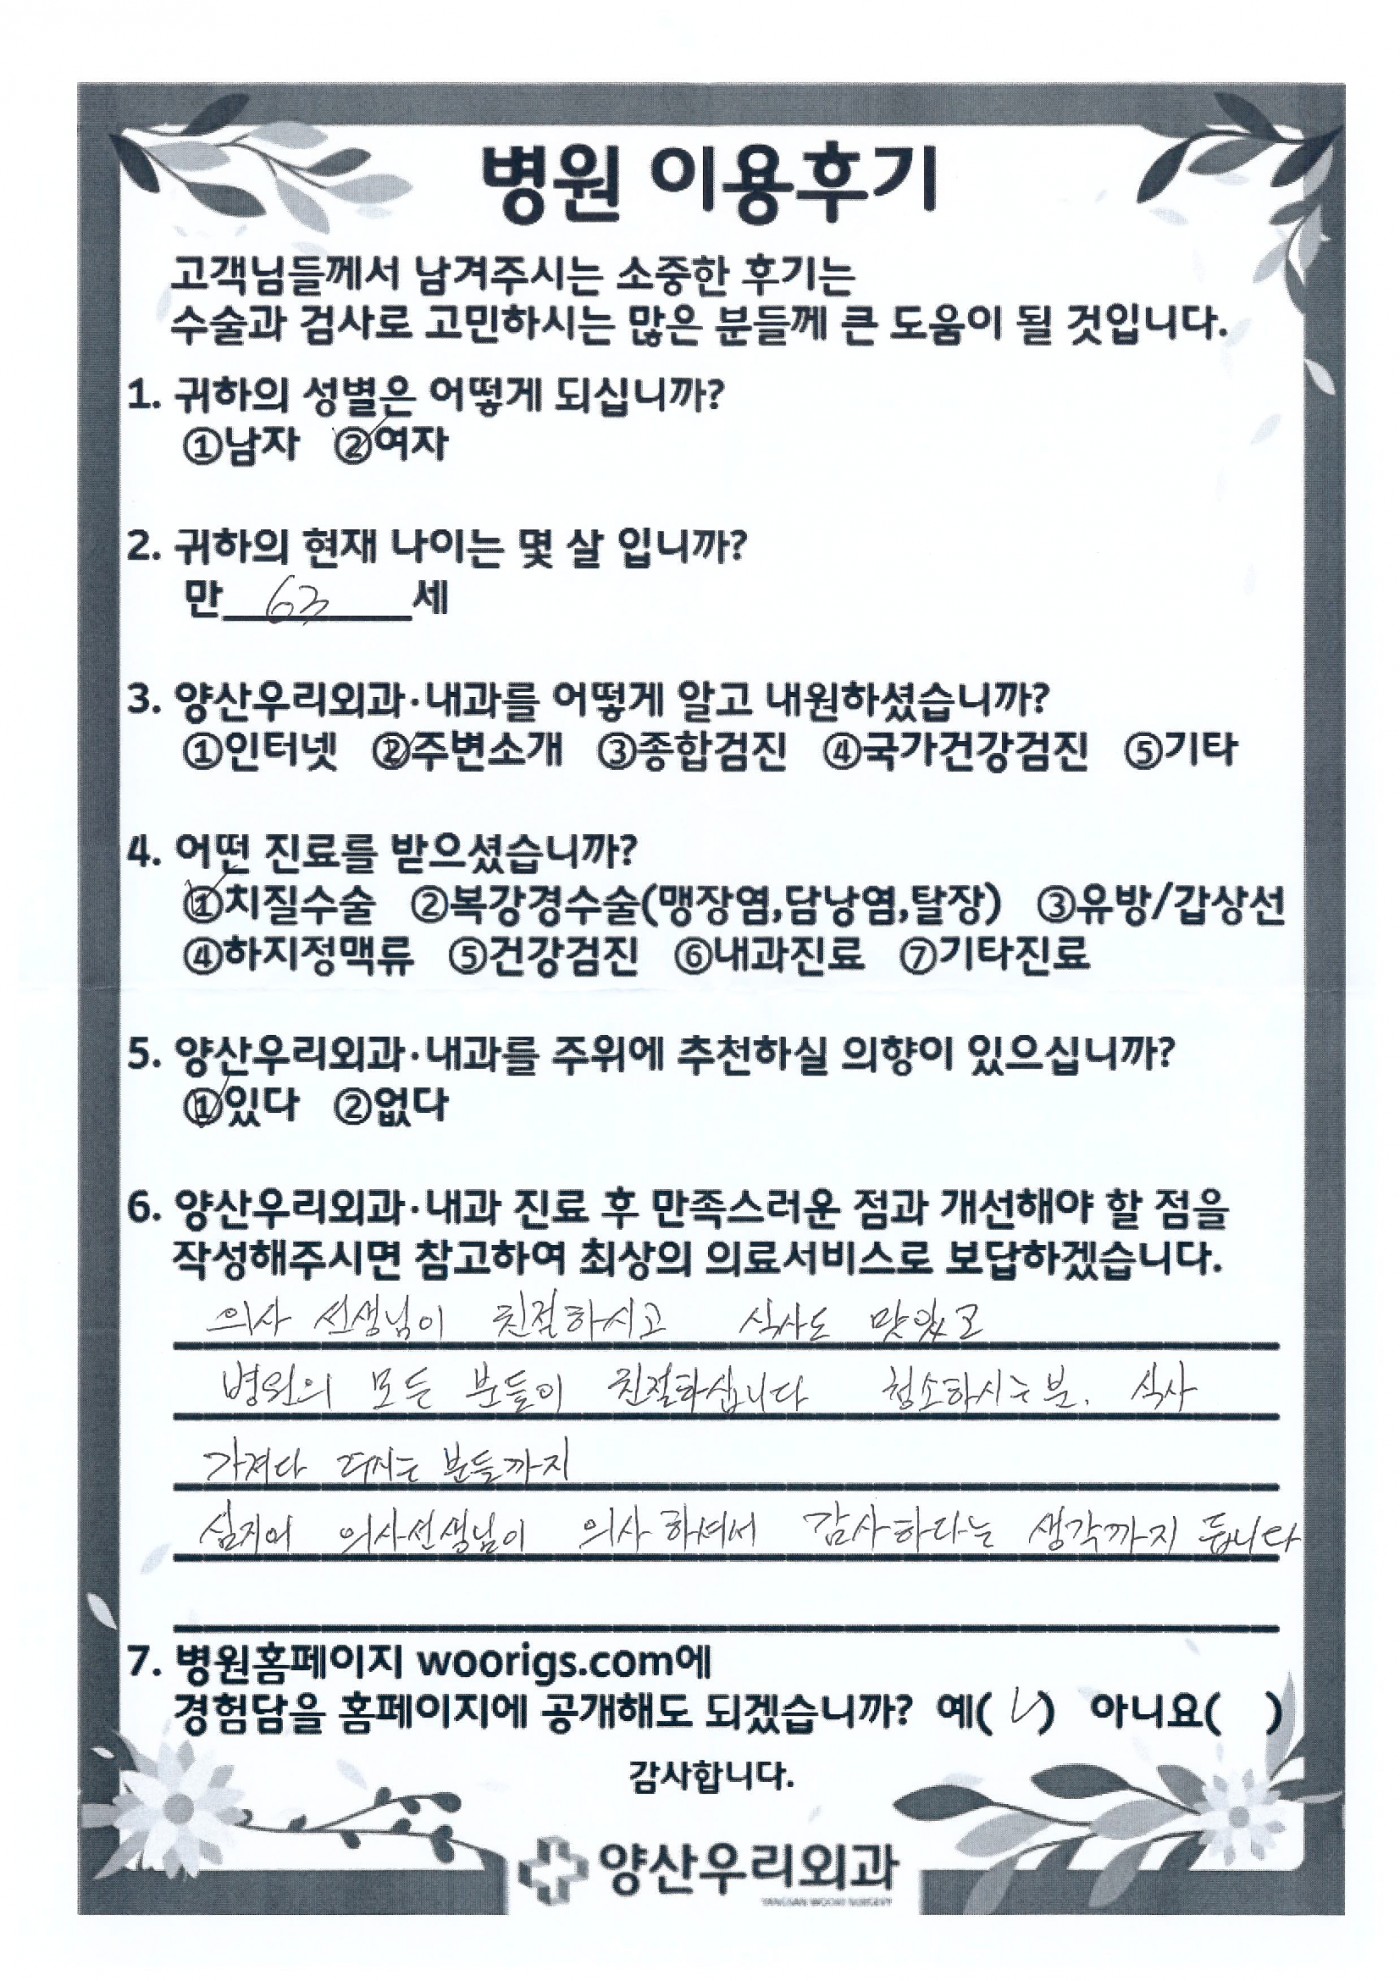 병원 이용후기
고객님들께서 남겨주시는 소중한 후기는
수술과 검사로 고민하시는 많은 분들께 큰 도움이 될 것입니다.
1. 귀하의 성별은 어떻게 되십니까?
①남자 ②여자
2. 귀하의 현재 나이는 몇 살 입니까?
만 63 세
3. 양산우리외과·내과를 어떻게 알고 내원하셨습니까?
①인터넷 ②주변소개 ③종합검진 ④국가건강검진 ⑤기타
4. 어떤 진료를 받으셨습니까?
①치질수술 ②복강경수술(맹장염,담낭염,탈장) ③유방/갑상선
④하지정맥류 ⑤건강검진 ⑥내과진료 ⑦기타진료
5. 양산우리외과·내과를 주위에 추천하실 의향이 있으십니까?
①있다 ②없다
6. 양산우리외과·내과 진료 후 만족스러운 점과 개선해야 할 점을
작성해주시면 참고하여 최상의 의료서비스로 보답하겠습니다.
의사 선생님이 친절하시고 식사도 맛있고
병원의 모든 분들이 친절하십니다 청소하시는분. 식사
가져다 주시는 분들까지
심지어 의사선생님이 의사하셔서 감사하다는 생각까지 듭니다
7. 병원홈페이지 woorigs.com에
경험담을 홈페이지에 공개해도 되겠습니까? 예( ✓ ) 아니요( )
감사합니다.
양산우리외과
YANGSAN WOORI SURGERY